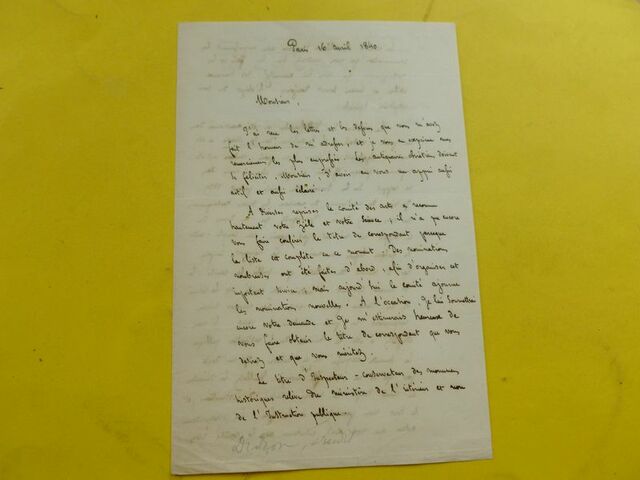 Paris 16 avril 1840
Monsieur,
J'ai reçu les lettres et les dessins que vous m'avez
fait l'honneur de m'adresser, et je vous en exprime mes
remerciemens les plus empressés. Les antiquaires chrétiens doivent
se féliciter, Monsieur, d'avoir en vous un appui aussi
actif et aussi éclairé.
A diverses reprises le comité des arts a reconnu
hautement votre zèle et votre science ; il n'a pu encore
vous faire conférer le titre de correspondant parceque
la liste est complète en ce moment. Des nominations
nombreuses ont été faites d'abord, afin d'organiser cet
important service ; mais aujourd'hui le comité ajourne
les nominations nouvelles. A l'occasion, je lui soumettrai
encore votre demande et je m'estimerais heureux de
vous faire obtenir le titre de correspondant que vous
desirez et que vous méritez.
Le titre d'Inspecteur-conservateur des monumens
historiques relève du ministère de l'intérieur et non
de l'Instruction publique.
Didron